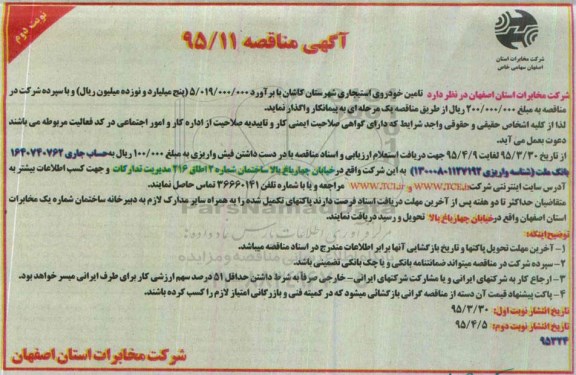 نوبت دوم
آگهی مناقصه ۹۵/۱۱
شرکت مخابرات استان
اصفهان سهامی خاص
شرکت مخابرات استان اصفهان در نظر دارد تامین خودروی استیجاری شهرستان کاشان با برآورد ۵/۰۱۹/۰۰۰/۰۰۰ (پنج میلیارد و نوزده میلیون ریال) و با سپرده شرکت در
مناقصه به مبلغ ۲۰۰/۰۰۰/۰۰۰ ریال از طریق مناقصه یک مرحله ای به پیمانکار واگذار نماید.
لذا از کلیه اشخاص حقیقی و حقوقی واجد شرایط که دارای گواهی صلاحیت ایمنی کار و تاییدیه صلاحیت از اداره کار و امور اجتماعی در کد فعالیت مربوطه می باشند
دعوت بعمل می آید.
از تاریخ ۹۵/۳/۳۰ لغایت ۹۵/۴/۹ جهت دریافت استعلام ارزیابی و اسناد مناقصه با در دست داشتن فیش واریزی به مبلغ ۱۰۰/۰۰۰ ریال به حساب جاری ۱۶۴۰۷۴۰۷۶۲
بانک ملت (شناسه واریزی ۱۳۰۰۰۸۰۱۱۲۷۱۹۲) به این شرکت واقع در خیابان چهارباغ بالا ساختمان شماره ۲ اطاق ۲۱۶ مدیریت تدارکات و جهت کسب اطلاعات بیشتر به
آدرس سایت اینترنتی شرکت WWW.TCI.ir و WWW.TCE.ir مراجعه و یا با شماره تلفن ۳۶۶۶۰۱۴۱ تماس حاصل نمایند.
متقاضیان حداکثر تا دو هفته پس از آخرین مهلت دریافت اسناد فرصت دارند پاکتهای تکمیل شده را به همراه سایر مدارک لازم به دبیرخانه ساختمان شماره یک مخابرات
استان اصفهان واقع در خیابان چهارباغ بالا تحویل و رسید دریافت نمایند.
توضیح اینکه:
۱- آخرین مهلت تحویل پاکتها و تاریخ بازگشایی آنها برابر اطلاعات مندرج در اسناد مناقصه میباشد.
۲- سپرده شرکت در مناقصه میتواند ضمانتنامه بانکی و یا چک بانکی تضمینی باشد.
۳- ارجاع کار به شرکتهای ایرانی و یا مشارکت شرکتهای ایرانی - خارجی صرفاً به شرط داشتن حداقل ۵۱ درصد سهم ارزشی کار برای طرف ایرانی میسر خواهد بود.
۴- پاکت پیشنهاد قیمت آن دسته از مناقصه گرانی بازگشائی میشود که در کمیته فنی و بازرگانی امتیاز لازم را کسب کرده باشند.
تاریخ انتشار نوبت اول: ۹۵/۳/۳۰
تاریخ انتشار نوبت دوم: ۹۵/۴/۵
۹۵۳۲۴
شرکت مخابرات استان اصفهان